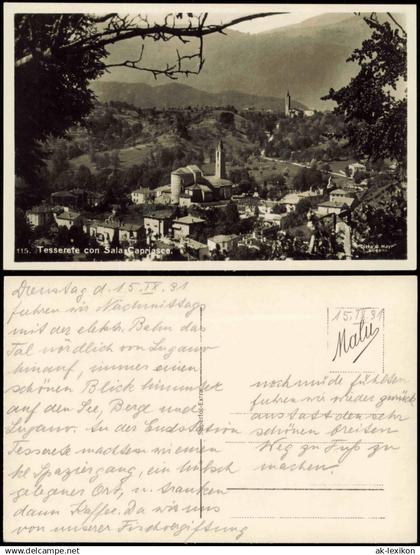 115. Tesserete con Sala Capriasca.
Dienstag d. 15.IX.31
fuhren wir Nachmittags
mit der elektr. Bahn das
Tal nördlich von Lugano
hinauf, immer einen
schönen Blick hinunter
auf den See, Berge und
Lugano. In der Endstation
Tesserete machten wir einen
kl. Spaziergang, ein hübsch
gelegener Ort, u. tranken
dann Kaffee. Da wir uns
von unserer Fischvergiftung
15.IX.31
Malu
noch müde fühlten
fuhren wir wieder zurück
anstatt den sehr
schönen breiten
Weg zu Fuß zu
machen.
© ak-lexikon